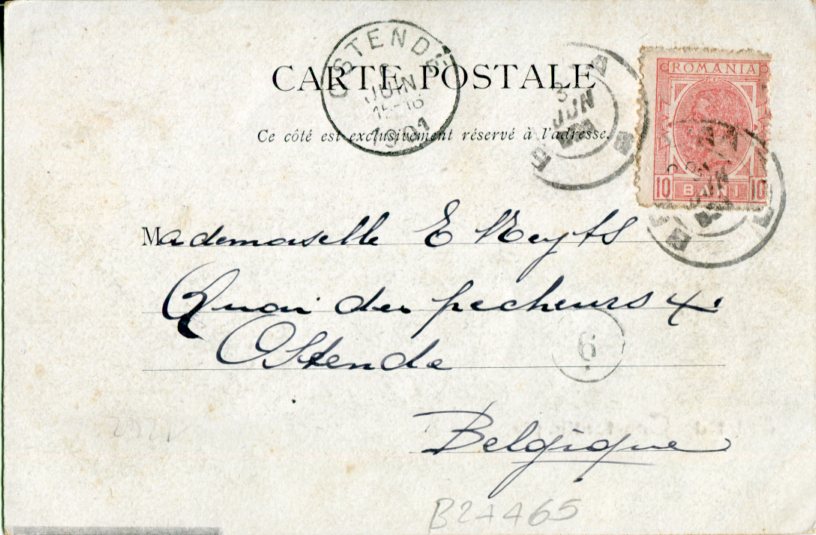 CARTE POSTALE
Ce côté est exclusivement réservé à l'adresse.
OSTENDE
JUIN
1901
ROMANIA
10 BANI 10
JUN
JUN
Mademoiselle E Neyts
Quai des pecheurs 4.
Ostende
6
Belgique
B27465